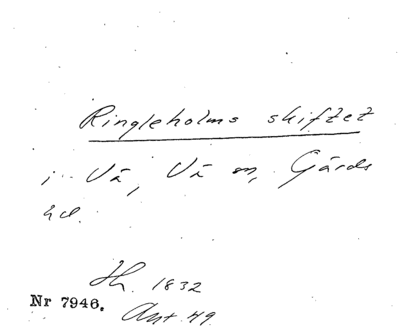 Ringleholms skiftet
i Vä, Vä sn, Gärds
hd.
Jh. 1832
Nr 7946. Ant. 49